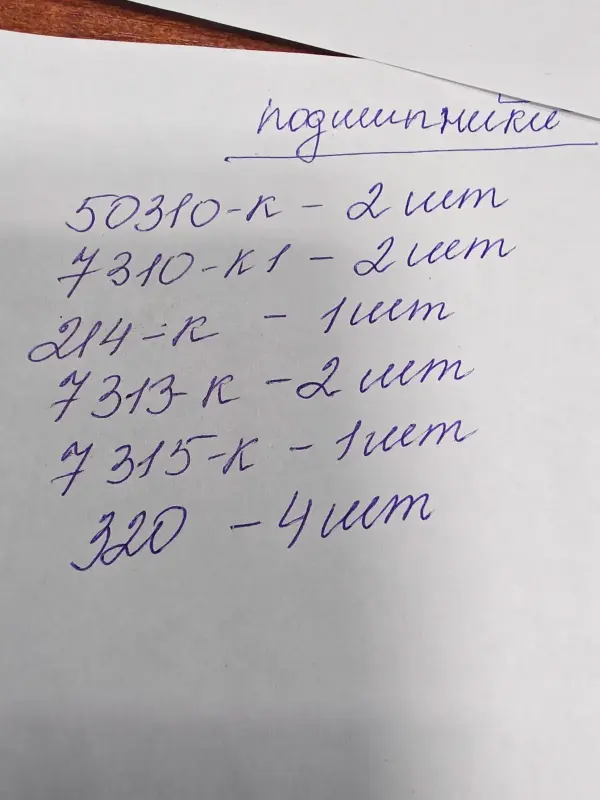 подшипники
50310-к - 2 шт
7310-к1 - 2 шт
214-к - 1 шт
7313-к - 2 шт
7315-к - 1 шт
320 - 4 шт